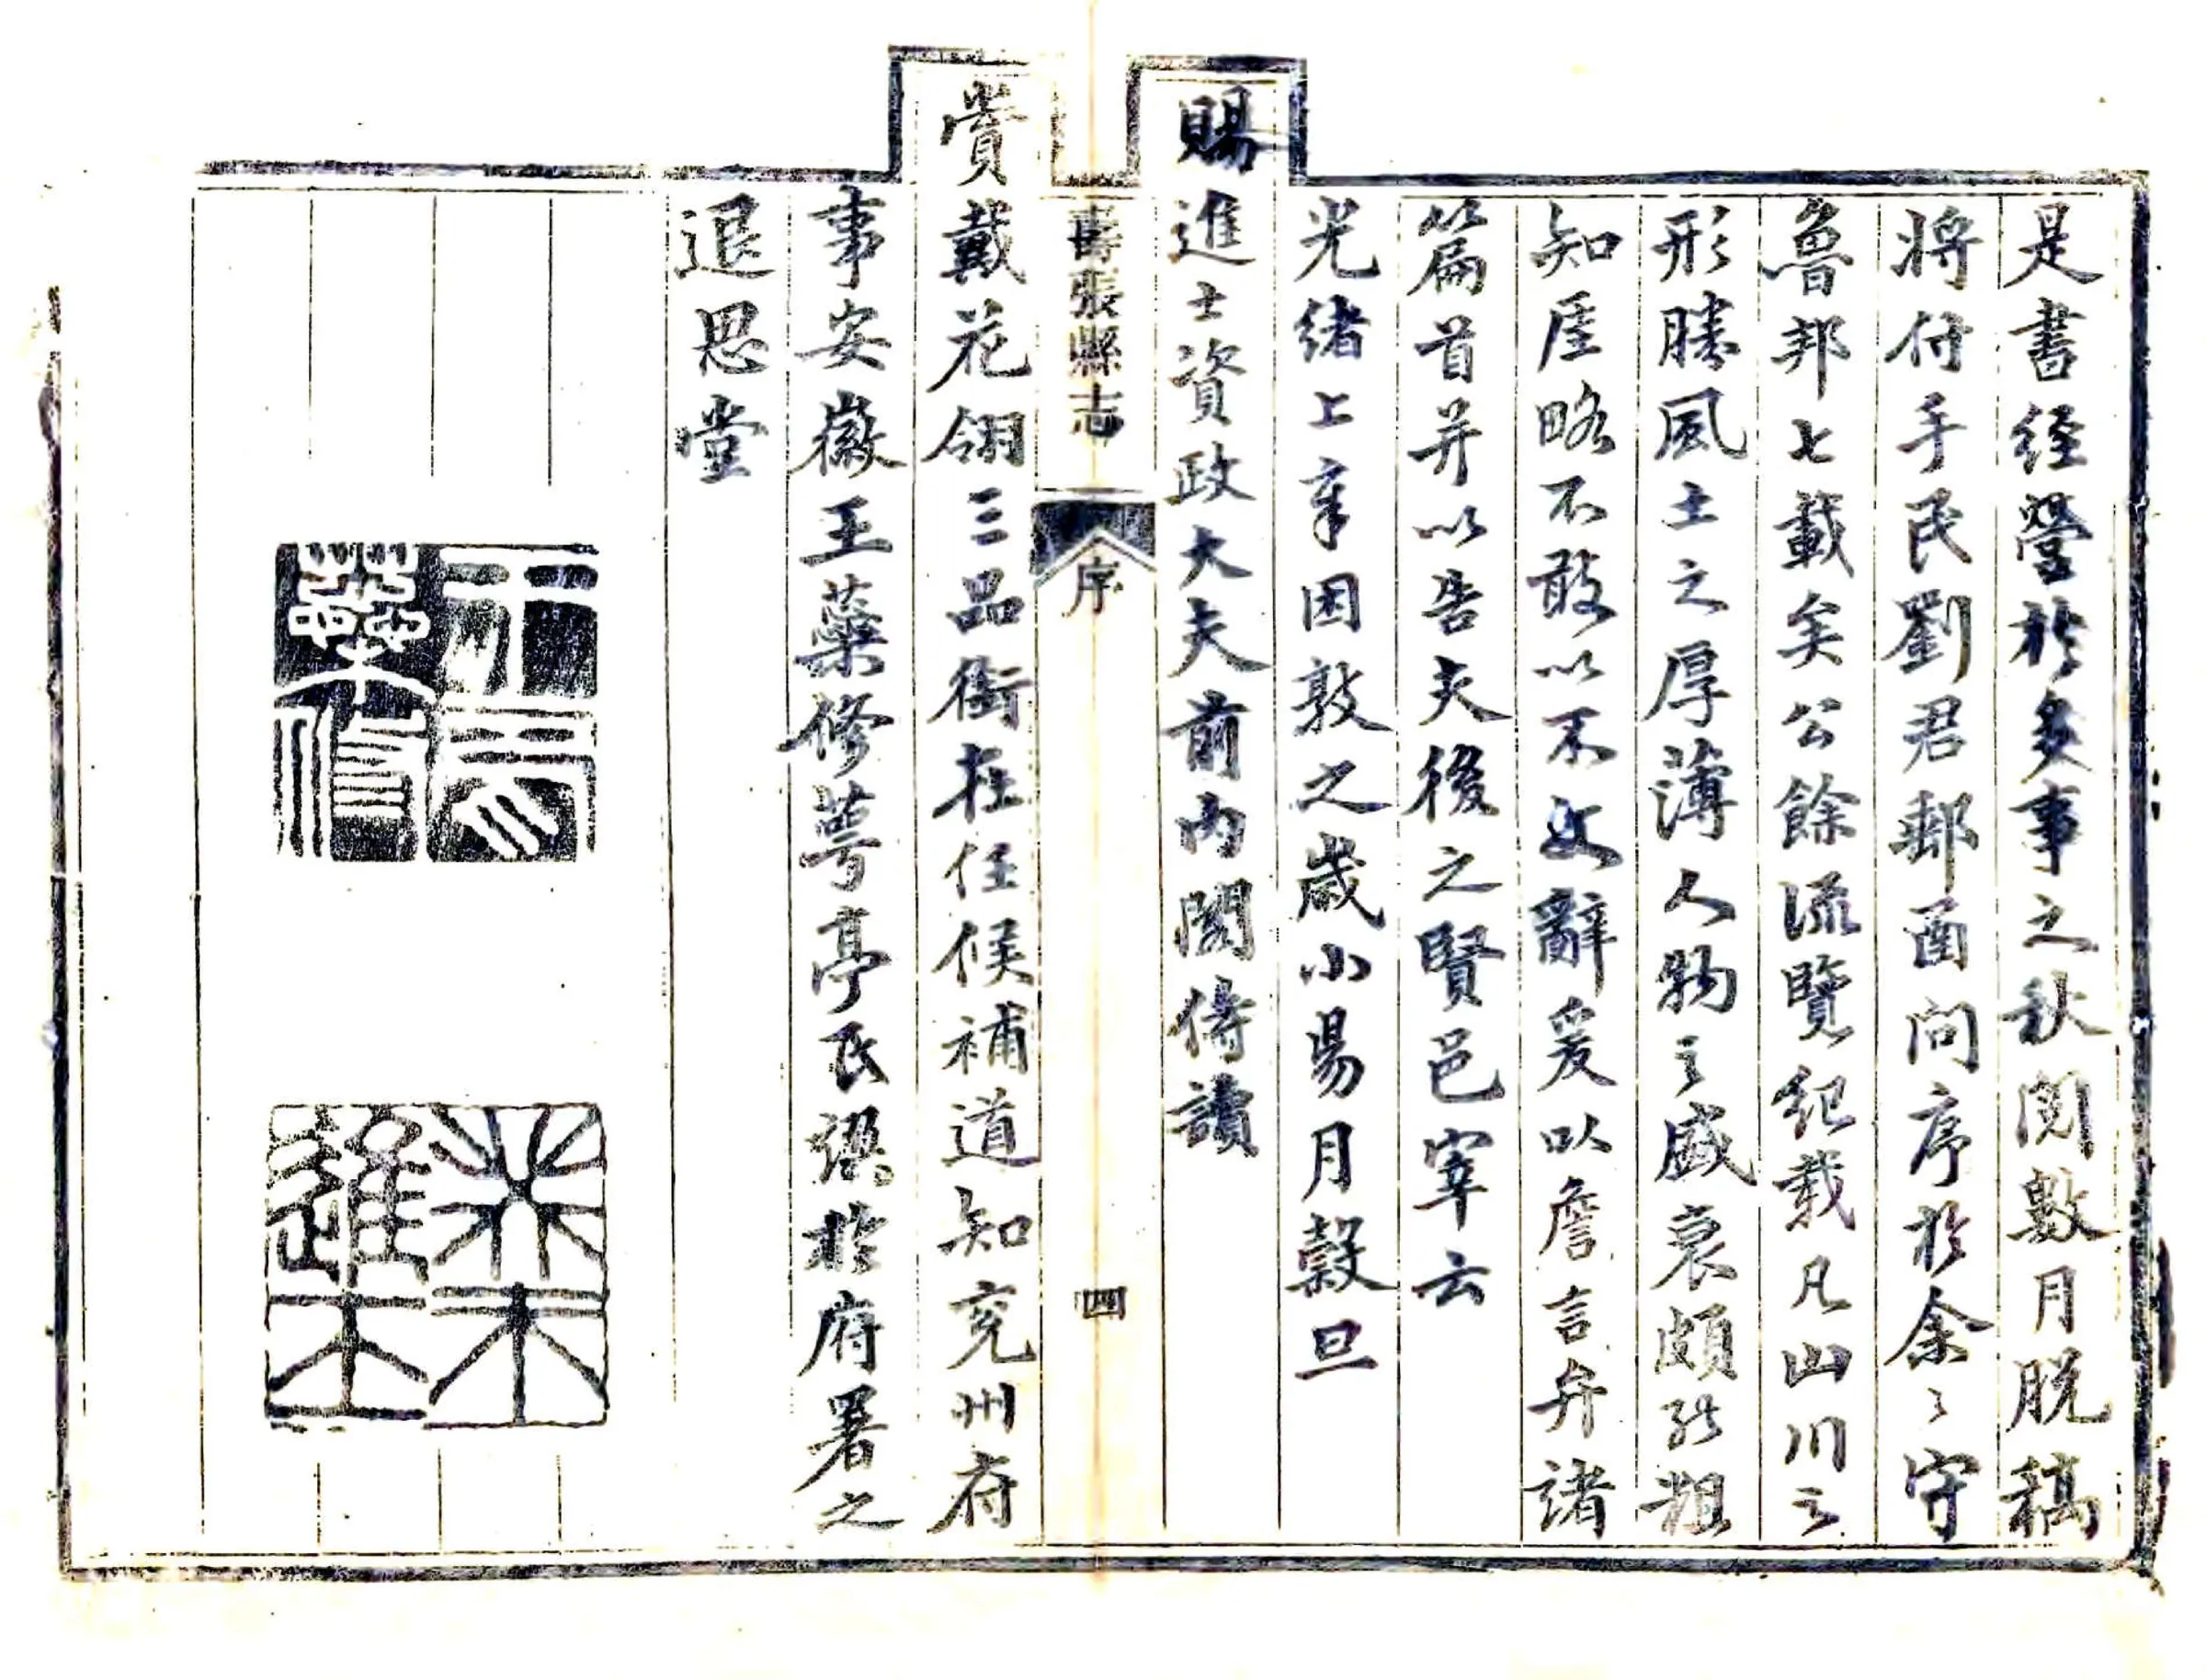 是書經營於多事之秋閱數月脫稿
將付手民劉君郵函問序於余〻守
魯邦七載矣公餘流覽紀載凡山川之
形勝風土之厚薄人物之盛衰頗能粗
知厓略不敢以不文辭爰以詹言弁諸
篇首并以告夫後之賢邑宰云
光緒上章困敦之歲小昜月穀旦
賜進士資政大夫前內閣侍讀
壽張縣志
序
四
賞戴花翎三品銜在任候補道知兗州府
事安徽王蘂修萼亭氏譔於府署之
退思堂